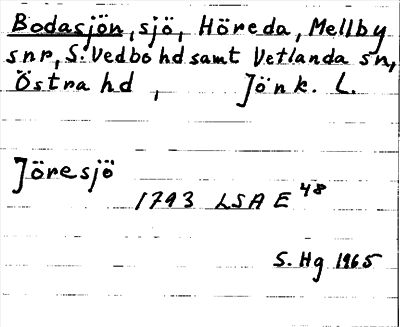 Bodasjön, sjö, Höreda, Mellby
snr, S. Vedbo hd samt Vetlanda sn,
Östra hd, Jönk. L.
Jöresjö
1793 LSA E 48
S. Hg 1965